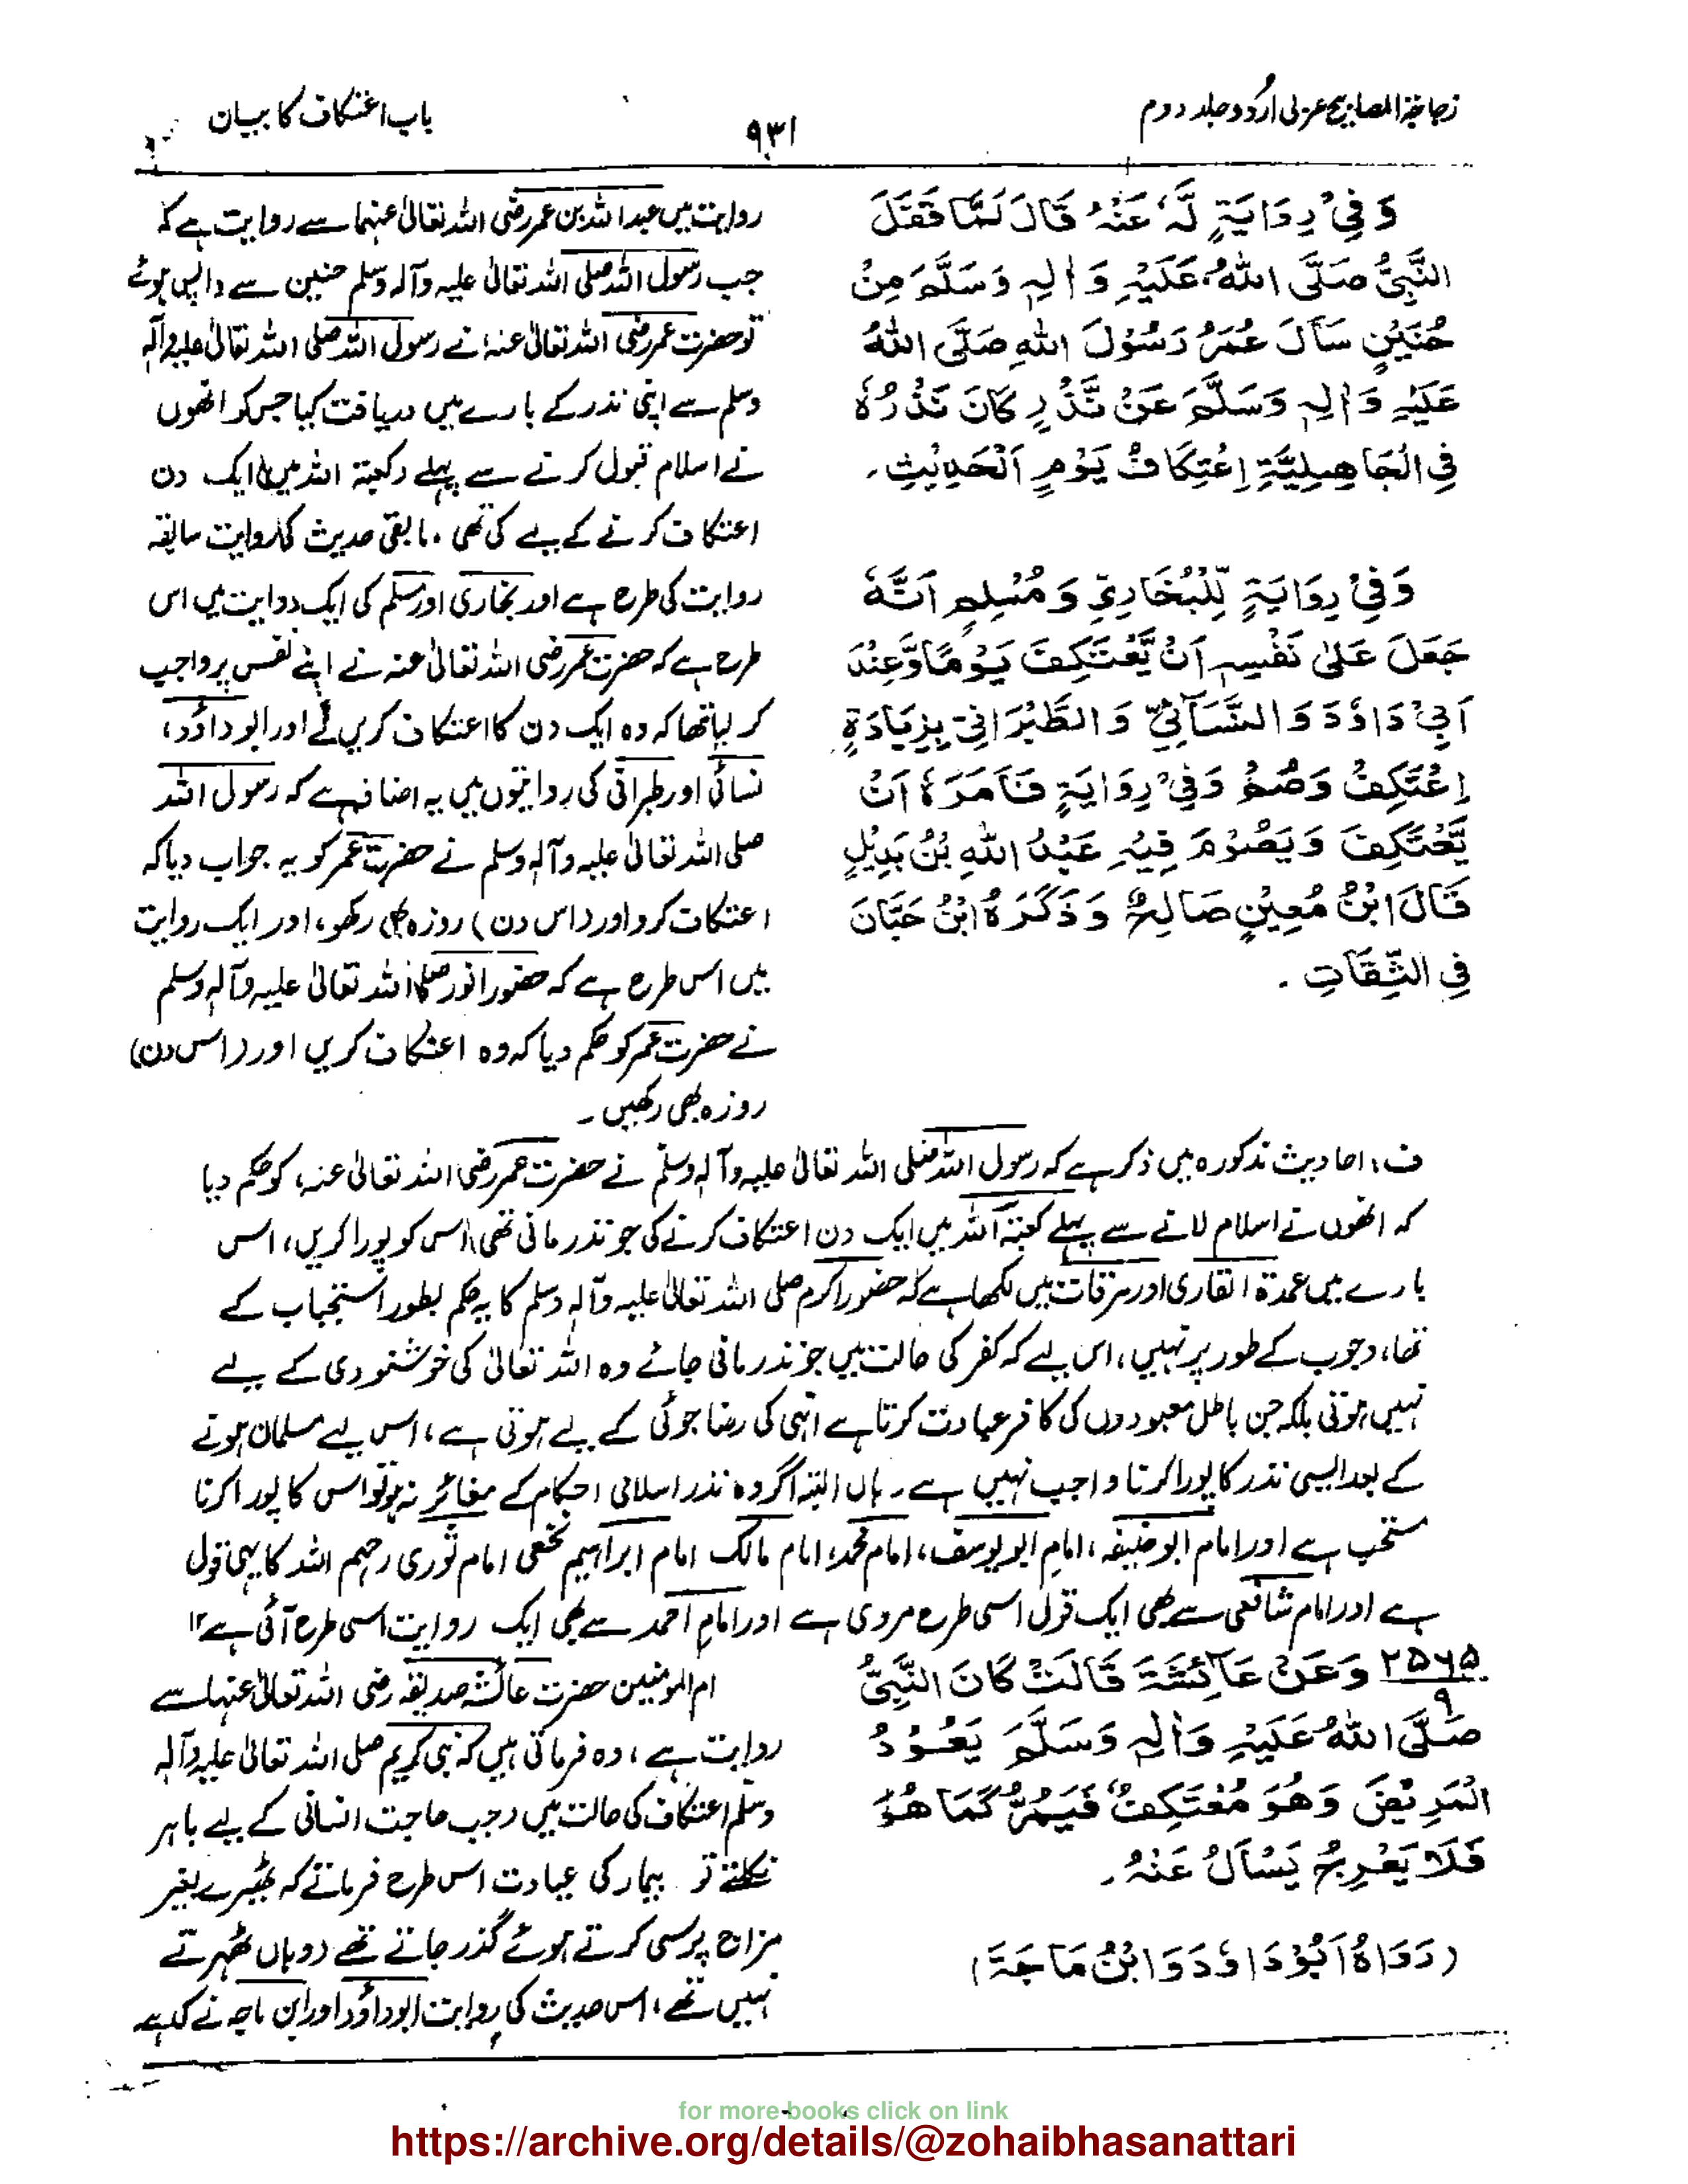 زجاجۃ المصابیح عربی اُردو جلد دوم
۹۳۱
باب اعتکاف کا بیان
وَفِیْ رِوَایَۃٍ لَّہٗ عَنْہُ قَالَ لَمَّا قَفَلَ
النَّبِیُّ صَلَّی اللہُ عَلَیْہِ وَاٰلِہٖ وَسَلَّمَ مِنْ
حُنَیْنٍ سَأَلَ عُمَرُ رَسُوْلَ اللہِ صَلَّی اللہُ
عَلَیْہِ وَاٰلِہٖ وَسَلَّمَ عَنْ نَّذْرٍ کَانَ نَذْرُہٗ
فِی الْجَاھِلِیَّۃِ اِعْتِکَافُ یَوْمٍ اَلْحَدِیْثِ۔
وَفِیْ رِوَایَۃٍ لِّلْبُخَارِیِّ وَمُسْلِمٍ اَنَّہٗ
جَعَلَ عَلٰی نَفْسِہٖ اَنْ یَّعْتَکِفَ یَوْمًا وَّعِنْدَ
اَبِیْ دَاوٗدَ وَالنَّسَآئِیِّ وَالطَّبْرَانِیِّ بِزِیَادَۃٍ
اِعْتَکِفْ وَصُمْ وَفِیْ رِوَایَۃٍ فَاَمَرَہٗ اَنْ
یَّعْتَکِفَ وَیَصُوْمَ فِیْہِ عَبْدُ اللہِ بْنُ بَدِیْلٍ
قَالَ ابْنُ مُعِیْنٍ صَالِحٌ وَذَکَرَہُ ابْنُ حَبَّانَ
فِی الثِّقَاتِ ۔
روایت میں عبداللہ بن عمر رضی اللہ تعالیٰ عنہما سے روایت ہے کہ
جب رسول اللہ صلی اللہ تعالیٰ علیہ وآلہ وسلم حنین سے واپس ہوئے
تو حضرت عمر رضی اللہ تعالیٰ عنہ نے رسول اللہ صلی اللہ تعالیٰ علیہ وآلہ
وسلم سے اپنی نذر کے بارے میں دریافت کیا جس کو انھوں
نے اسلام قبول کرنے سے پہلے (کعبۃ اللہ میں) ایک دن
اعتکاف کرنے کے لیے کی تھی ۔ مابقی حدیث کی روایت سابقہ
روایت کی طرح ہے اور بخاری اور مسلم کی ایک روایت میں اس
طرح ہے کہ حضرت عمر رضی اللہ تعالیٰ عنہ نے اپنے نفس پر واجب
کر لیا تھا کہ وہ ایک دن کا اعتکاف کریں گے اور ابو داؤد،
نسائی اور طبرانی کی روایتوں میں یہ اضافہ ہے کہ رسول اللہ
صلی اللہ تعالیٰ علیہ وآلہ وسلم نے حضرت عمر کو یہ جواب دیا کہ
اعتکاف کرو اور (اس دن) روزہ بھی رکھو، اور ایک روایت
میں اس طرح ہے کہ حضور انور صلی اللہ تعالیٰ علیہ وآلہ وسلم
نے حضرت عمر کو حکم دیا کہ وہ اعتکاف کریں اور (اس دن)
روزہ بھی رکھیں ۔
ف: احادیث مذکورہ میں ذکر ہے کہ رسول اللہ صلی اللہ تعالیٰ علیہ وآلہ وسلم نے حضرت عمر رضی اللہ تعالیٰ عنہ، کو حکم دیا
کہ انھوں نے اسلام لانے سے پہلے کعبۃ اللہ میں ایک دن اعتکاف کرنے کی جو نذر مانی تھی اس کو پورا کریں، اس
بارے میں عمدۃ القاری اور مرقات میں لکھا ہے کہ حضور اکرم صلی اللہ تعالیٰ علیہ وآلہ وسلم کا یہ حکم بطور استحباب کے
تھا، وجوب کے طور پر نہیں، اس لیے کہ کفر کی حالت میں جو نذر مانی جائے وہ اللہ تعالیٰ کی خوشنودی کے لیے
نہیں ہوتی بلکہ جن باطل معبودوں کی کافر عبادت کرتا ہے انہی کی رضا جوئی کے لیے ہوتی ہے، اس لیے مسلمان ہونے
کے بعد ایسی نذر کا پورا کرنا واجب نہیں ہے ۔ ہاں البتہ اگر وہ نذر اسلامی احکام کے مغائر نہ ہو تو اس کا پورا کرنا
مستحب ہے اور امام ابو حنیفہ، امام ابو یوسف، امام محمد، امام مالک امام ابراہیم نخعی امام ثوری رحہم اللہ کا یہی قول
ہے اور امام شافعی سے بھی ایک قول اسی طرح مروی ہے اور امام احمد سے بھی ایک روایت اسی طرح آئی ہے ۱۲
۲۵۶۵/۹ وَعَنْ عَآئِشَۃَ قَالَتْ کَانَ النَّبِیُّ
صَلَّی اللہُ عَلَیْہِ وَاٰلِہٖ وَسَلَّمَ یَعُوْدُ
الْمَرِیْضَ وَھُوَ مُعْتَکِفٌ فَیَمُرُّ کَمَا ھُوَ
فَلَا یَعْرِجُ یَسْاَلُ عَنْہُ۔
(رَوَاہُ اَبُوْ دَاوٗدَ وَابْنُ مَاجَۃَ)
ام المومنین حضرت عائشہ صدیقہ رضی اللہ تعالیٰ عنہا سے
روایت ہے، وہ فرماتی ہیں کہ نبی کریم صلی اللہ تعالیٰ علیہ وآلہ
وسلم اعتکاف کی حالت میں (جب حاجت انسانی کے لیے باہر
نکلتے تو بیمار کی عیادت اس طرح فرماتے کہ ٹھیرے بغیر
مزاج پرسی کرتے ہوئے گذر جاتے تھے (وہاں ٹھہرتے
نہیں تھے، اس حدیث کی روایت ابوداؤد اور ابن ماجہ نے کی ہے
for more books click on link
https://archive.org/details/@zohaibhasanattari